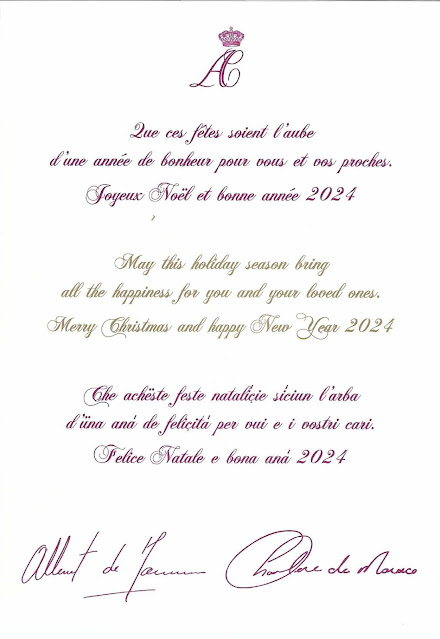 AC
Que ces fêtes soient l'aube
d'une année de bonheur pour vous et vos proches.
Joyeux Noël et bonne année 2024
May this holiday season bring
all the happiness for you and your loved ones.
Merry Christmas and happy New Year 2024
Che achëste feste nataliçie síciun l'arba
d'üna aná de feliçitá per vui e i vostri cari.
Felice Natale e bona aná 2024
Albert de Monaco Charlène de Monaco